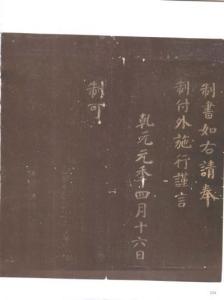 制書如右請奉
制付外施行謹言
乾元元年四月十六日
制可